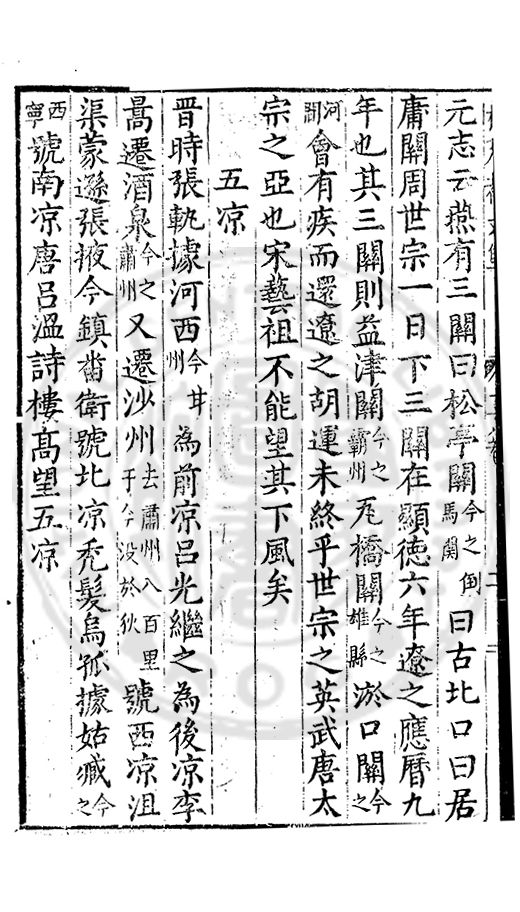 元志云燕有三關曰松亭關今之倒馬關曰古北口曰居
庸關周世宗一日下三關在顯德六年遼之應曆九
年也其三關則益津關今之霸州瓦橋關今之雄縣淤口關今之
河間會有疾而還遼之胡運未終乎世宗之英武唐太
宗之亞也宋藝祖不能望其下風矣
五凉
晋時張軌據河西今甘州為前凉呂光繼之為後凉李
暠遷酒泉今之肅州又遷沙州去肅州八百里于今没於狄號西凉沮
渠蒙遜張掖今鎮番衛號北凉秃髮烏孤據姑臧今之
西寧號南凉唐呂溫詩樓高望五凉